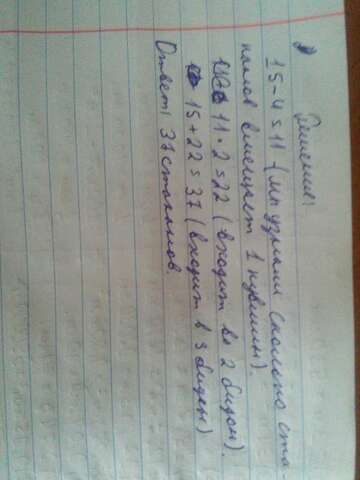 Решение:
15-4=11 (мы узнали сколько ста-
канов вмещает 1 кувшин).
11·2=22 (входит во 2 бидон).
15+22=37 (входит в 3 бидон)
Ответ: 37 стаканов.